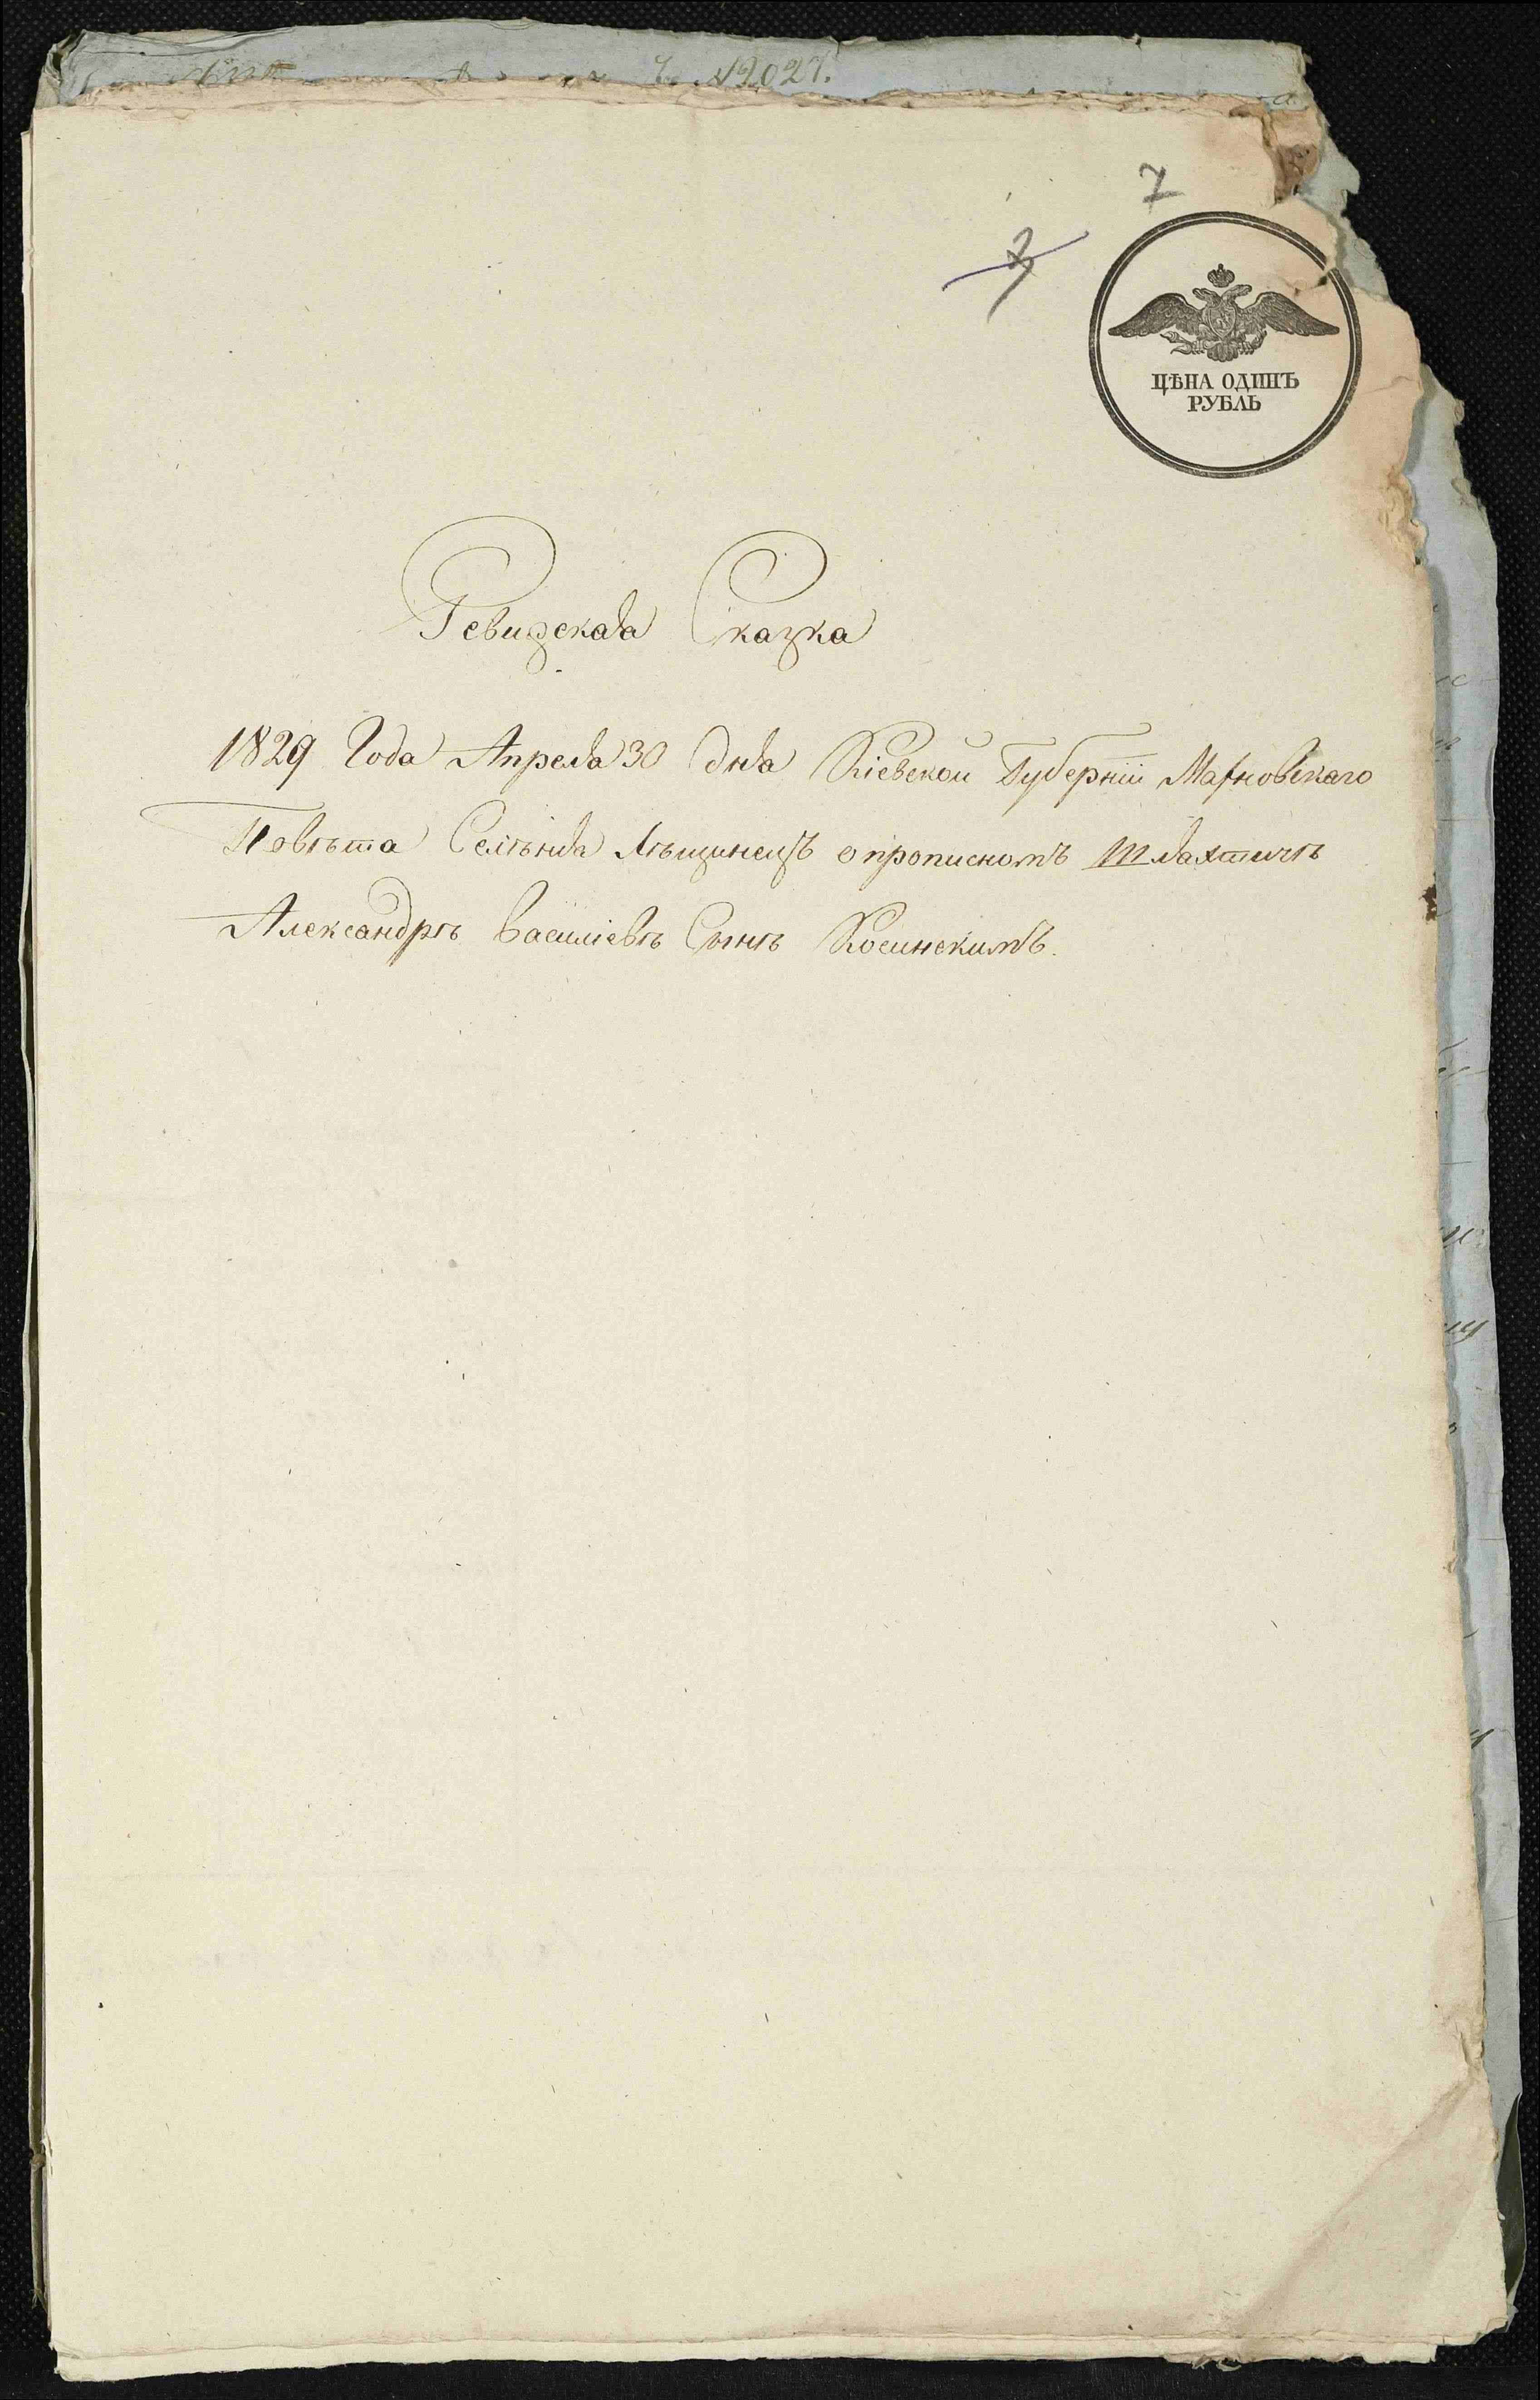 №2027.
7
3
ЦѢНА ОДИНЪ
РУБЛЬ
Ревизская Сказка
1829 Года Апреля 30 дня Кіевской Губерніи Махновскаго
Повѣта Селѣнія Лѣщинецъ о прописномъ Шляхтичѣ
Александрѣ Василіевѣ Сынѣ Косинскимъ.